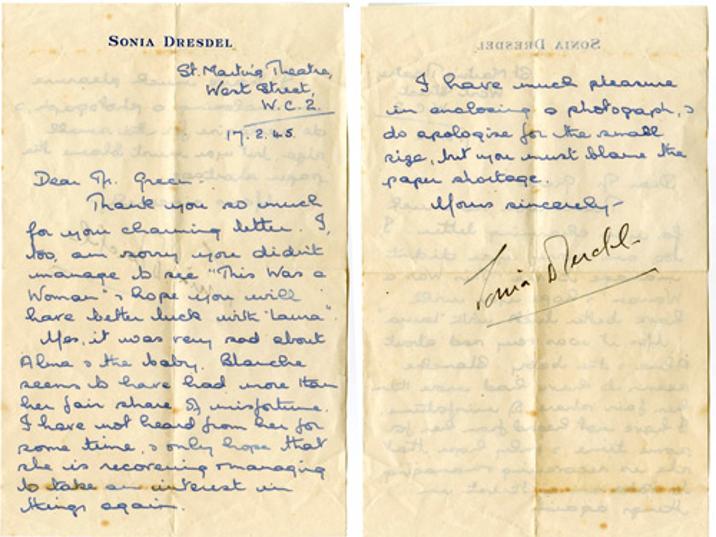 SONIA DRESDEL
St. Martin's Theatre,
West Street,
W.C.2.
17.2.45.
Dear Mr. Green.
Thank you so much
for your charming letter. I,
too, am sorry you didn't
manage to see "This Was a
Woman" & hope you will
have better luck with 'Laura'.
Yes, it was very sad about
Alma & the baby. Blanche
seems to have had more than
her fair share of misfortune.
I have not heard from her for
some time, & only hope that
she is recovering & managing
to take an interest in
things again.
I have much pleasure
in enclosing a photograph, &
do apologise for the small
size, but you must blame the
paper shortage.
Yours sincerely -
Sonia Dresdel